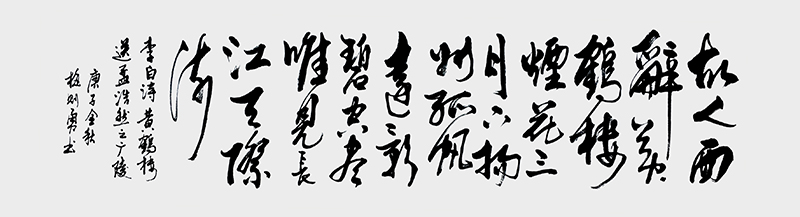 故人西
辭黄
鶴樓
煙花三
月下揚
州孤帆
遠影
碧空尽
唯見長
江天際
流
李白诗黄鶴楼
送孟浩然之广陵
庚子金秋
勇书